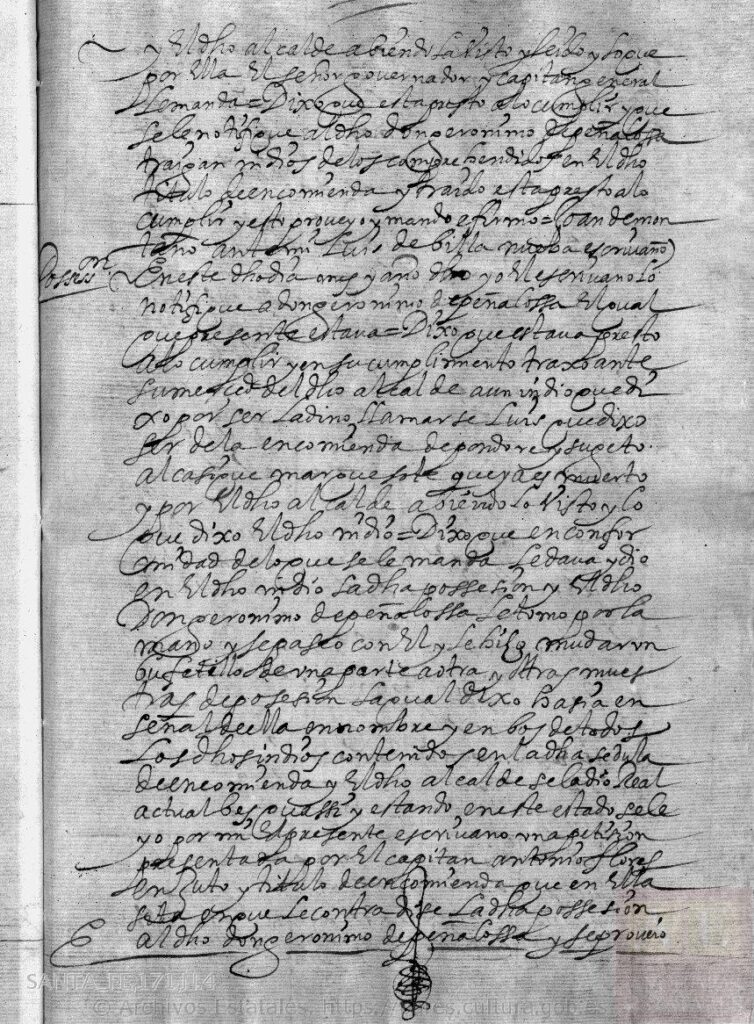 y El dho alcalde abiendo la visto y leido y lo que
por Ella El señor governador y capitan general
Le manda = Dixo que esta presto a lo cumplir y que
se le notifique al dho don geronimo de peñalossa
traigan indios de los comprehendidos en El dho
titulo de encomienda y traido esta presto a lo
cumplir y esto proveyo y mando e firmo = Joan de mon
taño ante mi Luis de billa nueba escrivano
Posesion
En este dho dia mes y año dho yo El escrivano Lo
notifique a don geronimo de peñalossa El qual
que presente estava = Dixo que estava presto
a lo cumplir y en su cumplimiento traxo ante
su merced del dho alcalde a un indio que di
xo por ser Ladino llamarse Luis que dixo
ser de la encomienda de pondore y sugeto
al casique marque que ya es muerto
y por El dho alcalde abiendo Lo visto y lo
que dixo El dho indio = Dixo que en confor
midad de lo que se le manda Le dava y dio
en El dho indio La dha possesion y El dho
Don geronimo de peñalossa Le tomo por la
mano y se paseo con El y le hizo mudar un
bufetillo de una parte a otra y otras mues
tras de posesion La qual dixo hasia en
señal de ella en nombre y en bos de todos
Los dhos indios contenidos en la dha sedula
de encomienda y El dho alcalde se la dio Real
actual bel quassi y estando en este estado se le
yo por mi El presente escrivano una petision
presentada por El capitan antonio flores
en auto y titulo de encomienda que en Ella
sita en que Le contradise La dha possesion
al dho don geronimo de peñalossa y se proveio
SANTA_FE,171,114
© Archivos Estatales, https://pares.cultura.gob.es